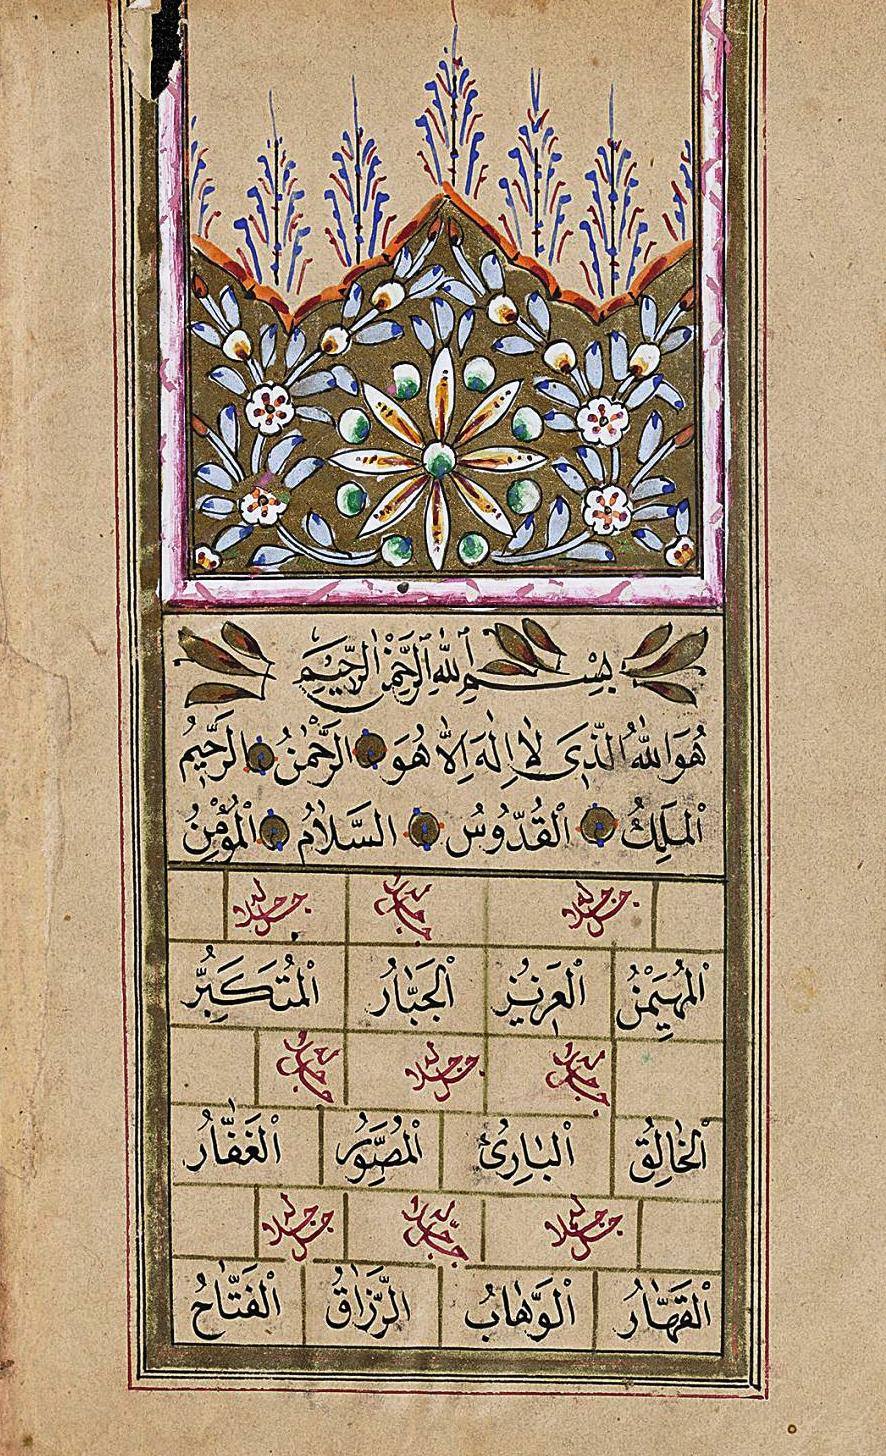 بِسْمِ اللّٰهِ الرَّحْمٰنِ الرَّحِيْمِ
هُوَ اللّٰهُ الَّذِى لَا اِلٰهَ اِلَّا هُوَ الرَّحْمٰنُ الرَّحِيْمُ
اَلْمَلِكُ الْقُدُّوسُ السَّلَامُ الْمُؤْمِنُ
جل جلاله جل جلاله جل جلاله
اَلْمُهَيْمِنُ اَلْعَزِيزُ اَلْجَبَّارُ اَلْمُتَكَبِّرُ
جل جلاله جل جلاله جل جلاله
اَلْخَالِقُ اَلْبَارِئُ اَلْمُصَوِّرُ اَلْغَفَّارُ
جل جلاله جل جلاله جل جلاله
اَلْقَهَّارُ اَلْوَهَّابُ اَلرَّزَّاقُ اَلْفَتَّاحُ